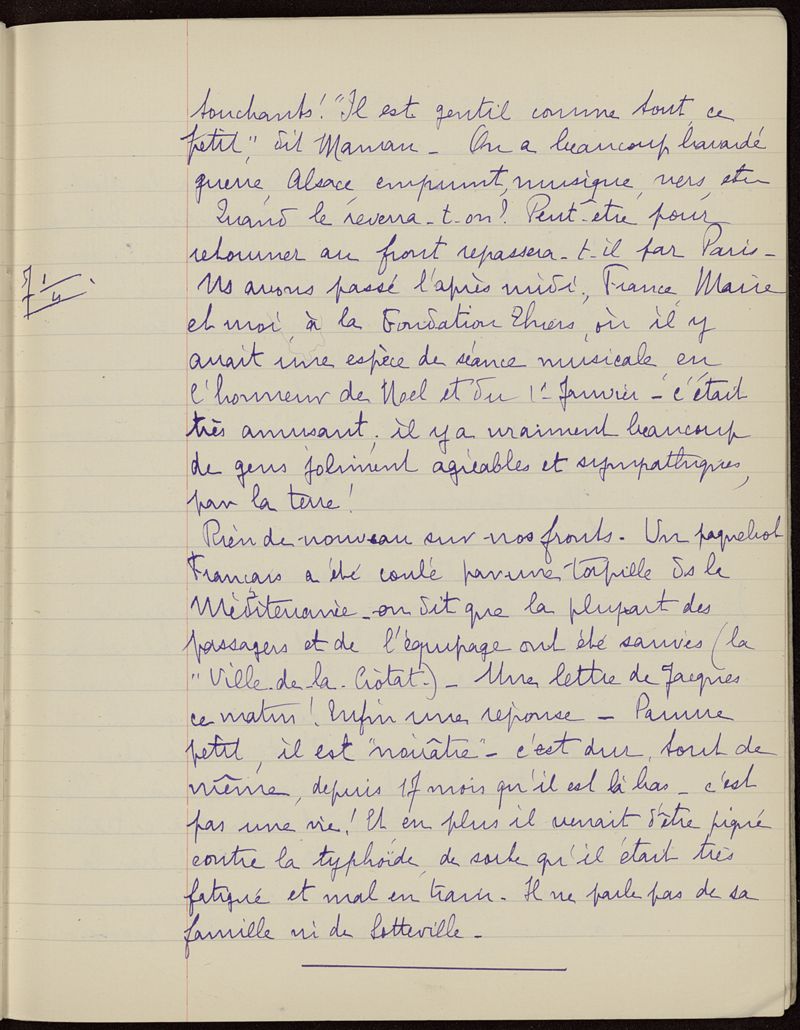 touchants! "Il est gentil comme tout, ce
petit", dit Maman - On a beaucoup bavardé
guerre, Alsace, emprunt, musique, vers, etc
Quand le reverra-t-on? Peut-être pour
retourner au front repassera-t-il par Paris -
Ns avons passé l'après midi, France, Marie
et moi, à la Fondation Thiers, où il y
avait une espèce de séance musicale, en
l'honneur de Noel et du 1er Janvier - c'était
très amusant, il y a vraiment beaucoup
de gens joliment agréables et sympathiques,
par la terre!
Rien de nouveau sur nos fronts. Un paquebot
Français a été coulé par une torpille ds la
Méditerranée - on dit que la plupart des
passagers et de l'équipage ont été sauvés (la
"Ville-de-la-Ciotat.) - Une lettre de Jacques
ce matin! Enfin une réponse - Pauvre
petit, il est "noirâtre" - c'est dur, tout de
même, depuis 17 mois qu'il est là bas - c'est
pas une vie! Et en plus il venait d'être piqué
contre la typhoïde, de sorte qu'il était très
fatigué et mal en train. Il ne parle pas de sa
famille ni de Sotteville -